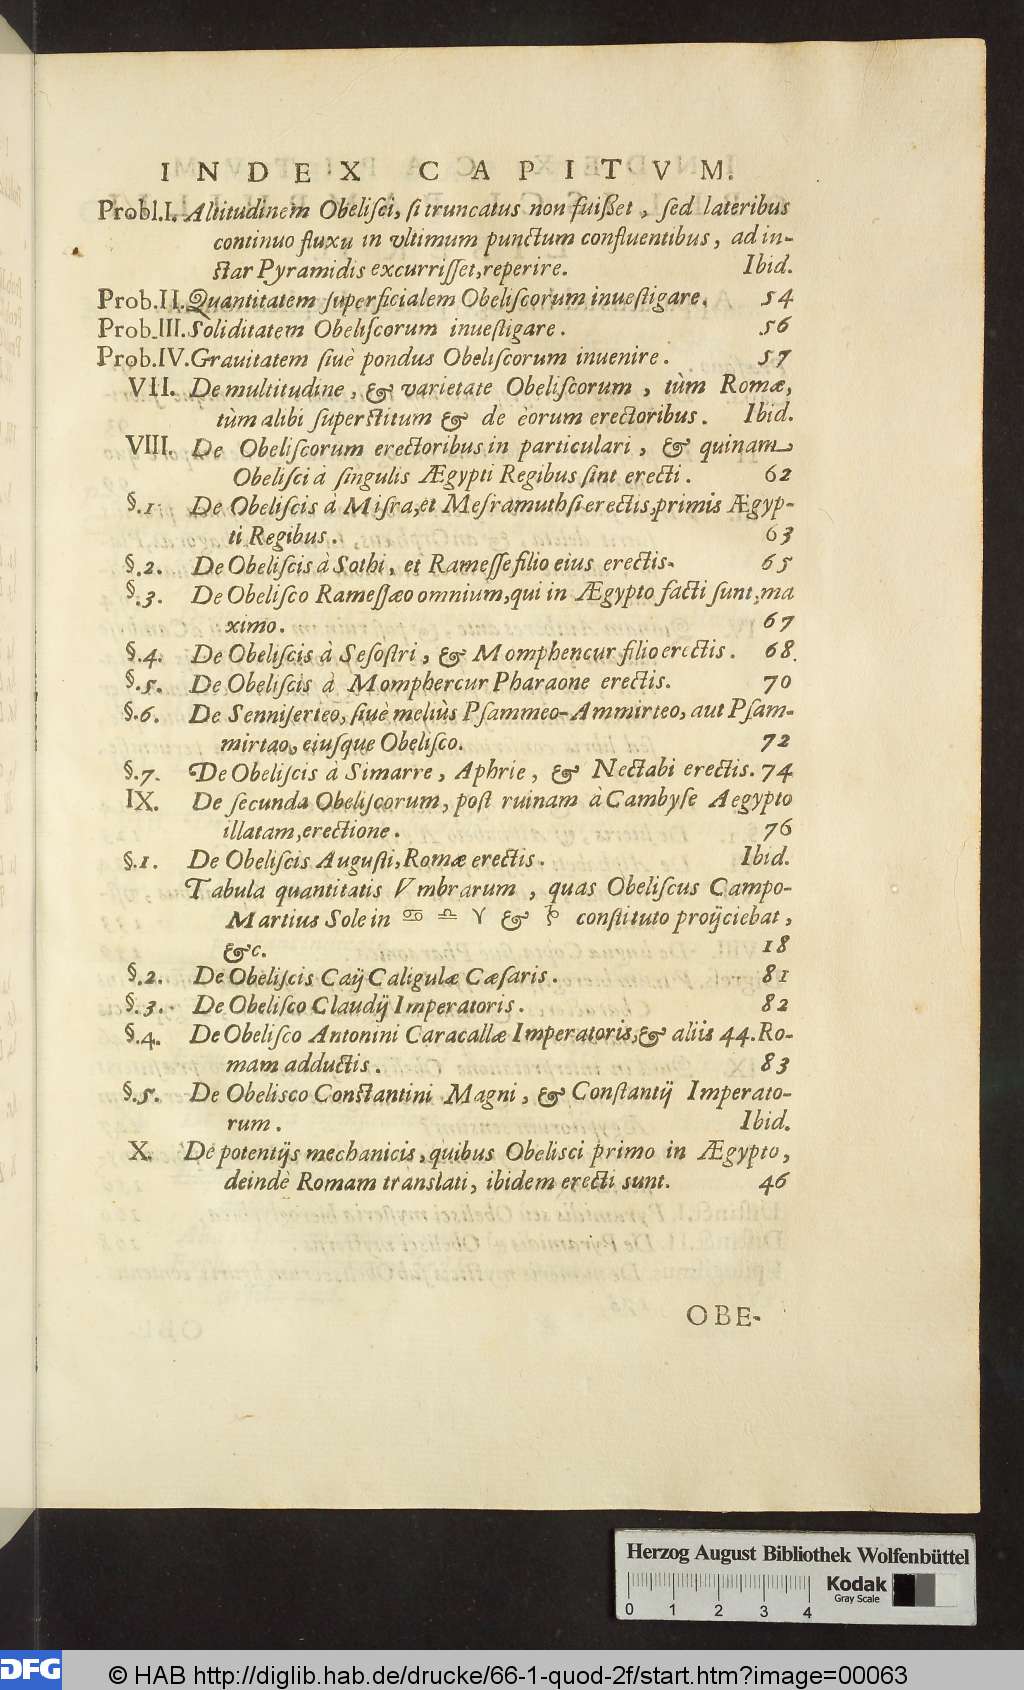 INDEX CAPITVM.
Probl.I. Altitudinem Obeliſci, ſi truncatus non fuiſſet, ſed lateribus
continuo fluxu in vltimum punctum confluentibus, ad in-
ſtar Pyramidis excurriſſet, reperire. Ibid.
Prob.II. Quantitatem ſuperficialem Obeliſcorum inueſtigare. 54
Prob.III. Soliditatem Obeliſcorum inueſtigare. 56
Prob.IV. Grauitatem ſiuè pondus Obeliſcorum inuenire. 57
VII. De multitudine, & varietate Obeliſcorum, tùm Romæ,
tùm alibi ſuperſtitum & de eorum erectoribus. Ibid.
VIII. De Obeliſcorum erectoribus in particulari, & quinam
Obeliſci à ſingulis Ægypti Regibus ſint erecti. 62
§.1. De Obeliſcis à Miſra, et Meſramuthſi erectis, primis Ægyp-
ti Regibus. 63
§.2. De Obeliſcis à Sothi, et Rameſſe filio eius erectis. 65
§.3. De Obeliſco Rameſſæo omnium, qui in Ægypto facti ſunt, ma
ximo. 67
§.4. De Obeliſcis à Seſoſtri, & Momphencur filio erectis. 68.
§.5. De Obeliſcis à Momphercur Pharaone erectis. 70
§.6. De Senniſerteo, ſiuè meliùs Pſammeo-Ammirteo, aut Pſam-
mirtao, eiuſque Obeliſco. 72
§.7. De Obeliſcis à Simarre, Aphrie, & Nectabi erectis. 74
IX. De ſecunda Obeliſcorum, poſt ruinam à Cambyſe Aegypto
illatam, erectione. 76
§.1. De Obeliſcis Auguſti, Romæ erectis. Ibid.
Tabula quantitatis Vmbrarum, quas Obeliſcus Campo-
Martius Sole in ♋ ♎ ♈ & ♑ conſtituto proijciebat,
&c. 18
§.2. De Obeliſcis Caij Caligulæ Cæſaris. 81
§.3. De Obeliſco Claudij Imperatoris. 82
§.4. De Obeliſco Antonini Caracallæ Imperatoris, & aliis 44. Ro-
mam adductis. 83
§.5. De Obelisco Conſtantini Magni, & Conſtantij Imperato-
rum. Ibid.
X. De potentijs mechanicis, quibus Obelisci primo in Ægypto,
deindè Romam translati, ibidem erecti sunt. 46
OBE-
Herzog August Bibliothek Wolfenbüttel
Kodak
Gray Scale
0 1 2 3 4
DFG © HAB http://diglib.hab.de/drucke/66-1-quod-2f/start.htm?image=00063